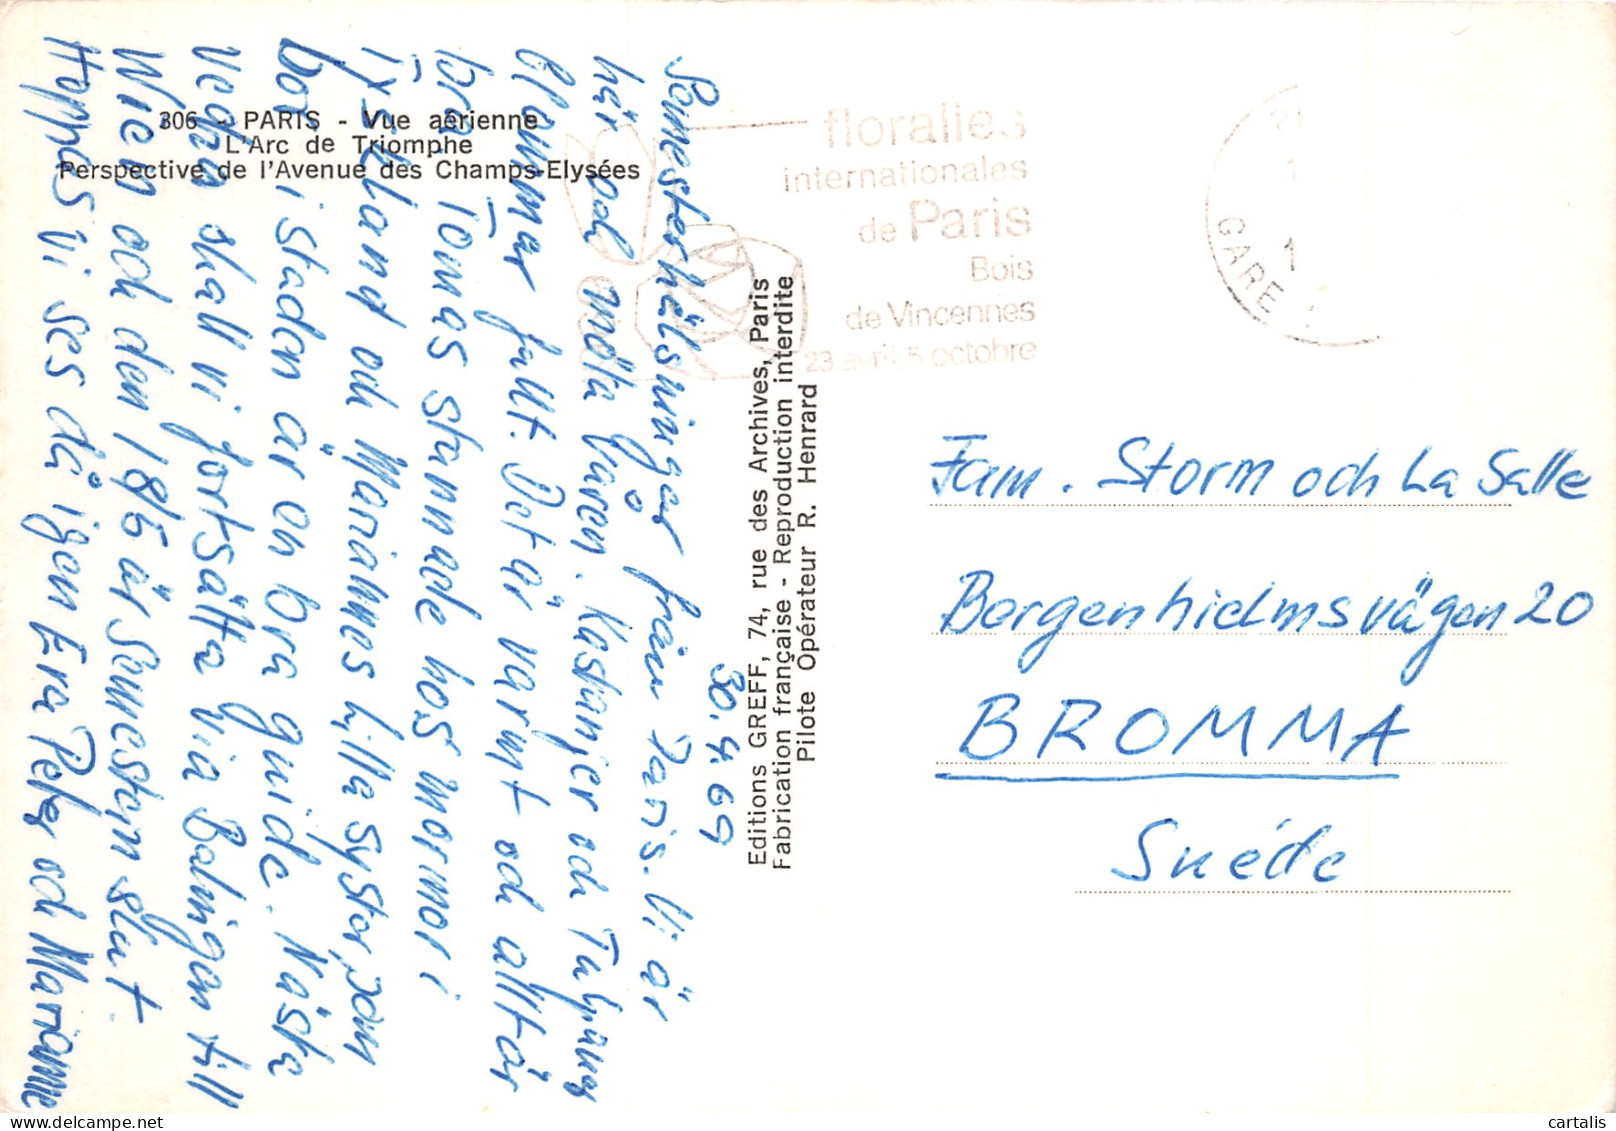 306 - PARIS - Vue aérienne
L'Arc de Triomphe
Perspective de l'Avenue des Champs-Elysées
30.4.69
Semesterhälsningar från Paris. Vi är
här och möta våren. Kastanjer och Tulpaner
blommar fullt. Det är varmt och allt är
bra. Tomas stannade hos mormor i
Tyskland och Mariannes lilla syster, som
bor i staden är en bra guide. Nästa
vecka skall vi fortsätta via Balingen till
Wien och den 18/5 är semestern slut.
Hoppas vi ses då igen Era Peter och Marianne
Editions GREFF, 74, rue des Archives, Paris
Fabrication française - Reproduction interdite
Pilote Opérateur R. Henrard
floralies
internationales
de Paris
Bois
de Vincennes
23 avril, 5 octobre
GARE
Fam. Storm och La Salle
Bergenhielmsvägen 20
BROMMA
Suéde
cartalis